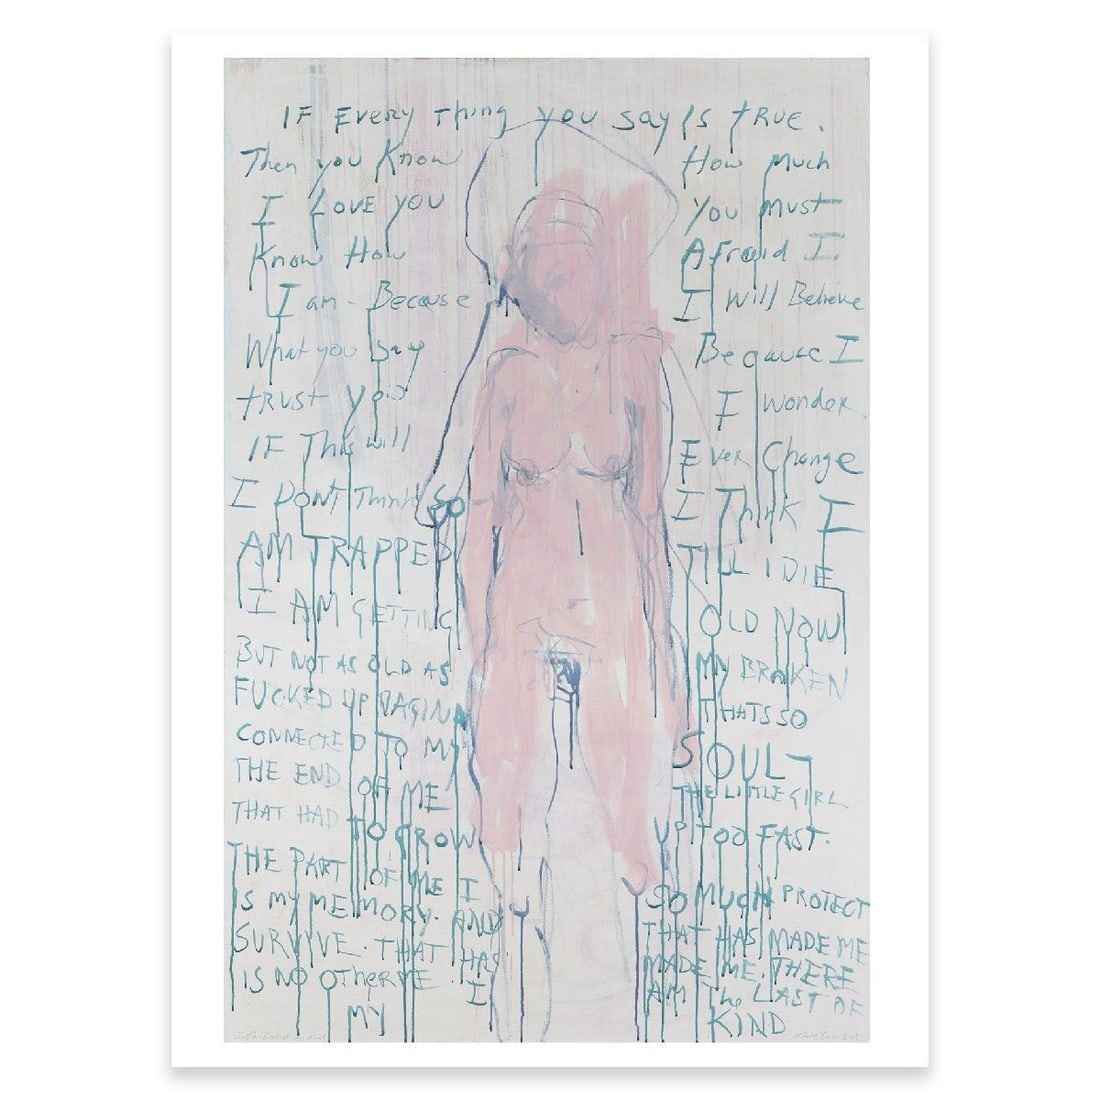 IF Every Thing you say Is tRUE.
Then you Know How much
I LOVE you You must
Know How Afraid I
I am - Because I Will Believe
What you say Because I
tRust you I wonder
IF This will Ever Change
I DONT Think so I Think I
AM TRAPPED TILL I DIE
I AM GETTING OLD NOW
BUT NOT AS OLD AS MY BROKEN
FUCKED UP VAGINA THATS SO
CONNECTED TO MY SOUL
THE END OF ME THE LITTLE GIRL
THAT HAD TO GROW UP TOO FAST.
THE PART OF ME I SO MUCH PROTECT
IS MY MEMORY. AND THAT HAS MADE ME
SURVIVE. THAT HAS MADE ME. THERE
IS NO OTHER ME I AM The LAST OF
MY KIND